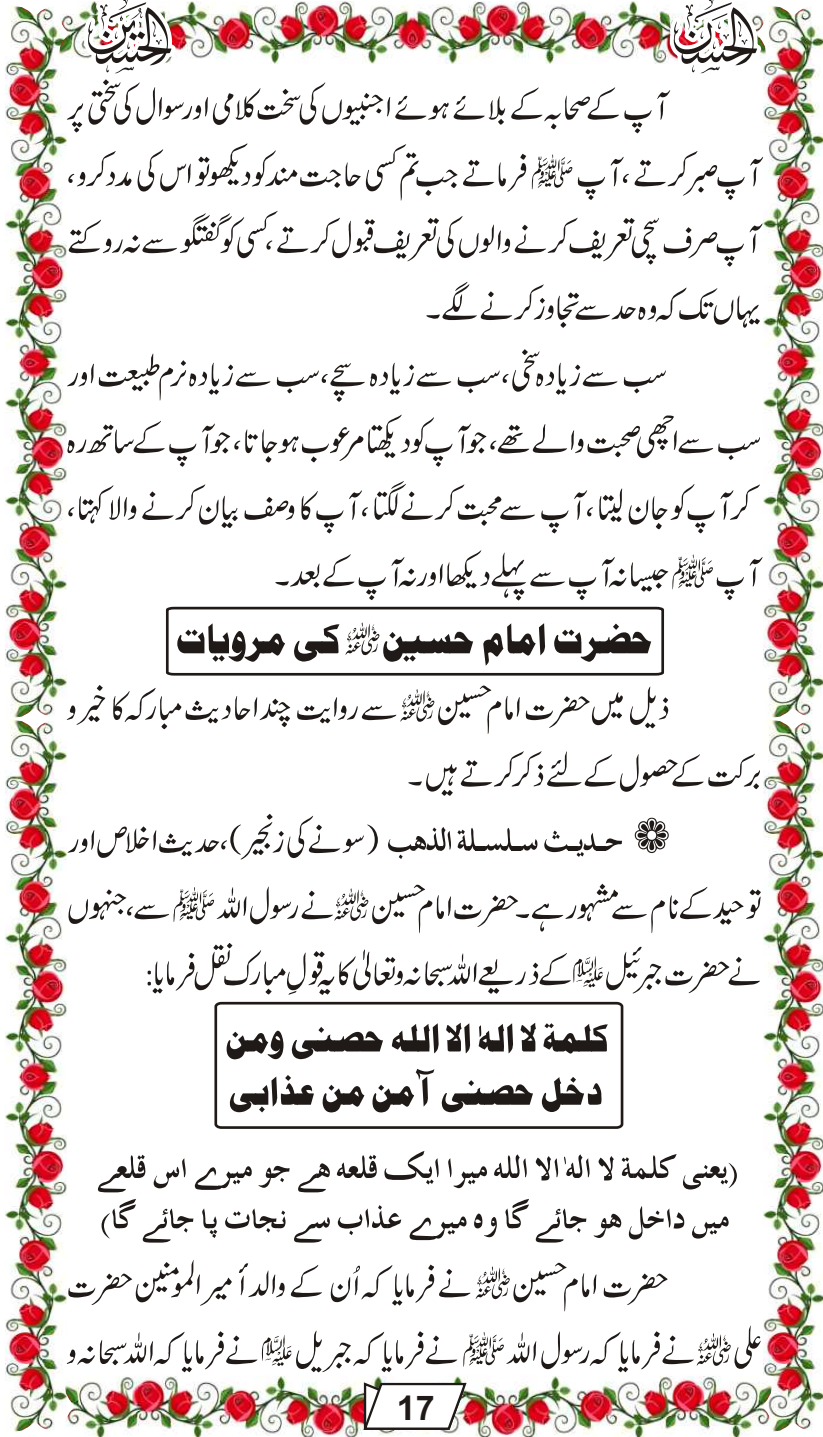 الحسن الحسین
آپ کے صحابہ کے بلائے ہوئے اجنبیوں کی سخت کلامی اور سوال کی سختی پر
آپ صبر کرتے ،آپ ﷺ فرماتے جب تم کسی حاجت مند کو دیکھو تو اس کی مدد کرو،
آپ صرف سچی تعریف کرنے والوں کی تعریف قبول کرتے ،کسی کو گفتگو سے نہ روکتے
یہاں تک کہ وہ حد سے تجاوز کرنے لگے۔
سب سے زیادہ سخی ،سب سے زیادہ سچے ،سب سے زیادہ نرم طبیعت اور
سب سے اچھی صحبت والے تھے، جو آپ کو دیکھتا مرعوب ہو جاتا، جو آپ کے ساتھ رہ
کر آپ کو جان لیتا ،آپ سے محبت کرنے لگتا ،آپ کا وصف بیان کرنے والا کہتا،
آپ ﷺ جیسا نہ آپ سے پہلے دیکھا اور نہ آپ کے بعد۔
حضرت امام حسین رضی اللہ عنہ کی مرویات
ذیل میں حضرت امام حسین رضی اللہ عنہ سے روایت چند احادیث مبارکہ کا خیر و
برکت کے حصول کے لئے ذکر کرتے ہیں۔
حدیث سلسلة الذهب (سونے کی زنجیر)،حدیث اخلاص اور
توحید کے نام سے مشہور ہے۔ حضرت امام حسین رضی اللہ عنہ نے رسول اللہ ﷺ سے، جنہوں
نے حضرت جبرئیل علیہ السلام کے ذریعے اللہ سبحانہ وتعالیٰ کا یہ قولِ مبارک نقل فرمایا:
کلمة لا الهٰ الا الله حصنی ومن
دخل حصنی آمن من عذابی
(یعنی کلمة لا الهٰ الا الله میرا ایک قلعه هے جو میرے اس قلعے
میں داخل هو جائے گا وه میرے عذاب سے نجات پا جائے گا)
حضرت امام حسین رضی اللہ عنہ نے فرمایا کہ اُن کے والد أمیر المومنین حضرت
علی رضی اللہ عنہ نے فرمایا کہ رسول اللہ ﷺ نے فرمایا کہ جبریل علیہ السلام نے فرمایا کہ اللہ سبحانہ و
17